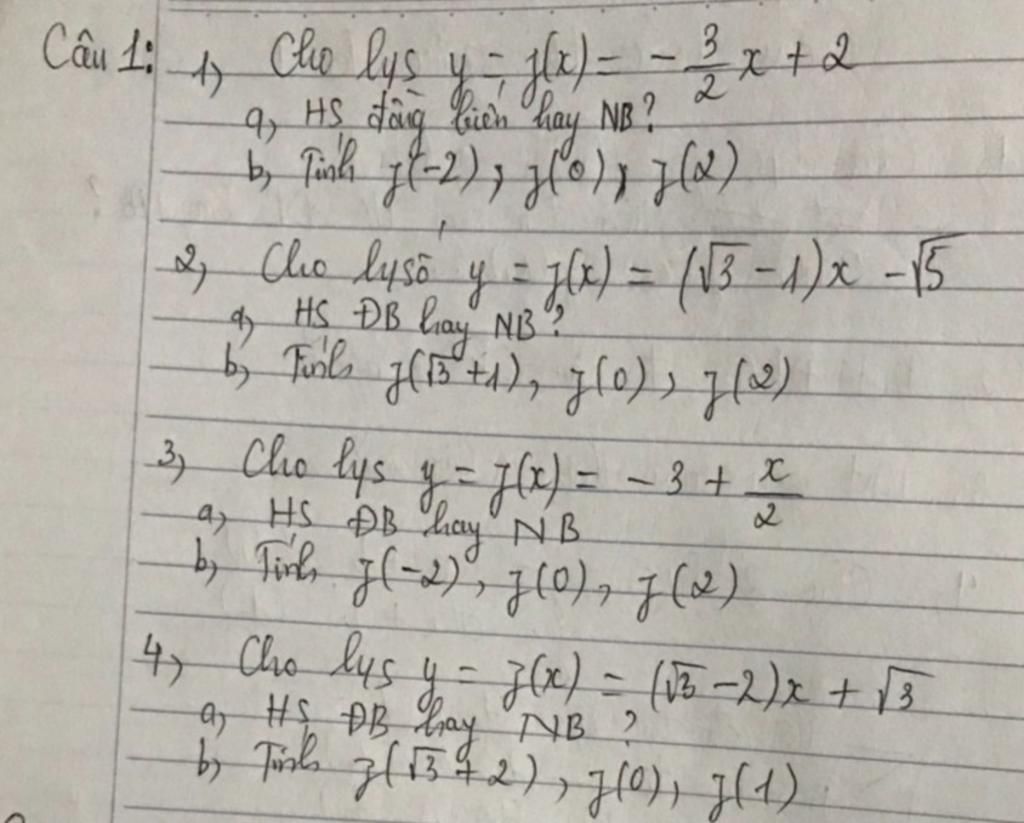 Câu 1: 1, Cho hàm số y = f(x) = -3/2 x + 2
a, HS đồng biến hay NB?
b, Tính f(-2), f(0), f(2)
2, Cho hàm số y = f(x) = (√3 - 1)x - √5
a, HS ĐB hay NB?
b, Tính f(√3 + 1), f(0), f(2)
3, Cho hs y = f(x) = -3 + x/2
a, HS ĐB hay NB
b, Tính f(-2), f(0), f(2)
4, Cho hs y = f(x) = (√3 - 2)x + √3
a, HS ĐB hay NB ?
b, Tính f(√3 + 2), f(0), f(1)